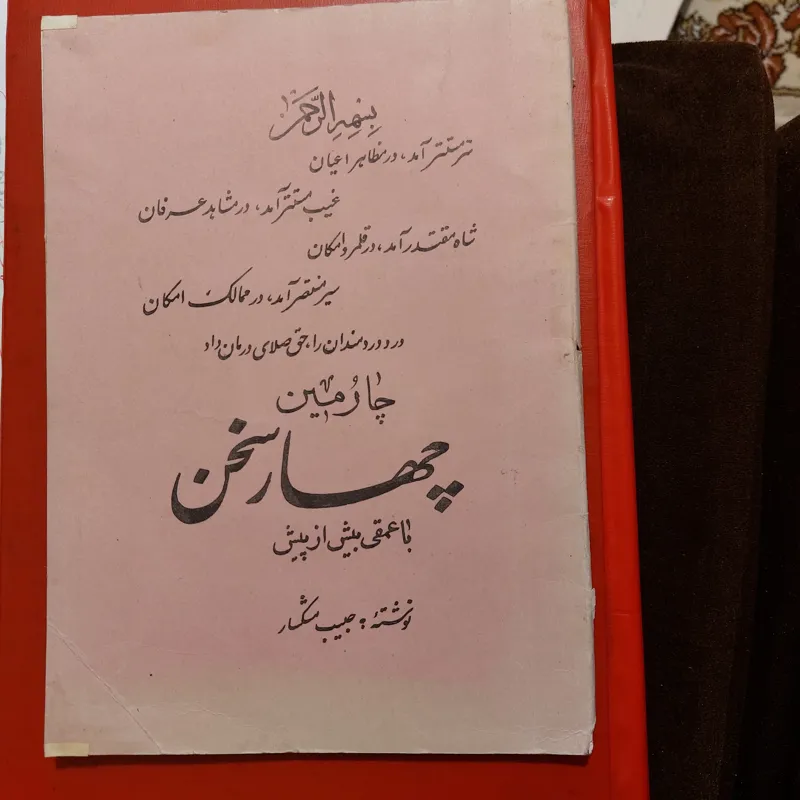 بسمه الرحمن
سر مستتر آمد، در مظاهر اعیان
غیب مستتر آمد، در مشاهد عرفان
شاه مقتدر آمد، در قلمرو امکان
سیر منتصر آمد، در ممالک امکان
درد دردمندان را، حق صلای درمان داد
چارمین
چهار سخن
با عمقی بیش از پیش
نوشتهٔ: حبیب مشکسار